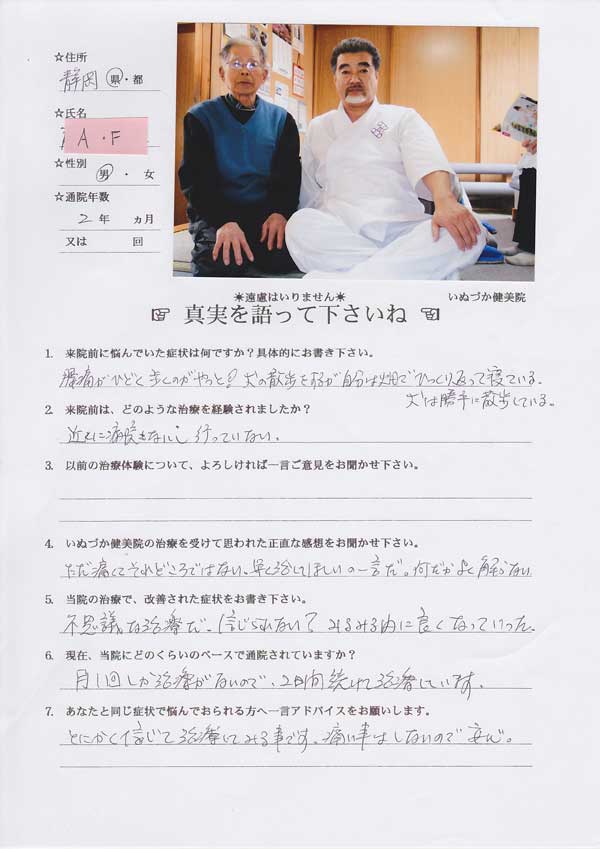 ☆住所
静岡 県・都
☆氏名
A・F
☆性別
男 ・ 女
☆通院年数
2 年 ヵ月
又は 回
✳遠慮はいりません✳ いぬづか健美院
☞ 真実を語って下さいね ☜
1. 来院前に悩んでいた症状は何ですか？具体的にお書き下さい。
腰痛がひどく歩くのがやっと！犬の散歩をするが自分は畑でひっくり返って寝ている。
犬は勝手に散歩している。
2. 来院前は、どのような治療を経験されましたか？
近くに病院もないし行っていない。
3. 以前の治療体験について、よろしければ一言ご意見をお聞かせ下さい。
4. いぬづか健美院の治療を受けて思われた正直な感想をお聞かせ下さい。
ただ痛くてそれどころではない。早く治してほしいの一言だ。何だかよく解らない
5. 当院の治療で、改善された症状をお書き下さい。
不思議な治療だ。信じられない？みるみる内に良くなっていった。
6. 現在、当院にどのくらいのペースで通院されていますか？
月1回しか治療がないので、2日間続けて治療しています。
7. あなたと同じ症状で悩んでおられる方へ一言アドバイスをお願いします。
とにかく信じて治療してみる事です。痛い事はしないので安心。